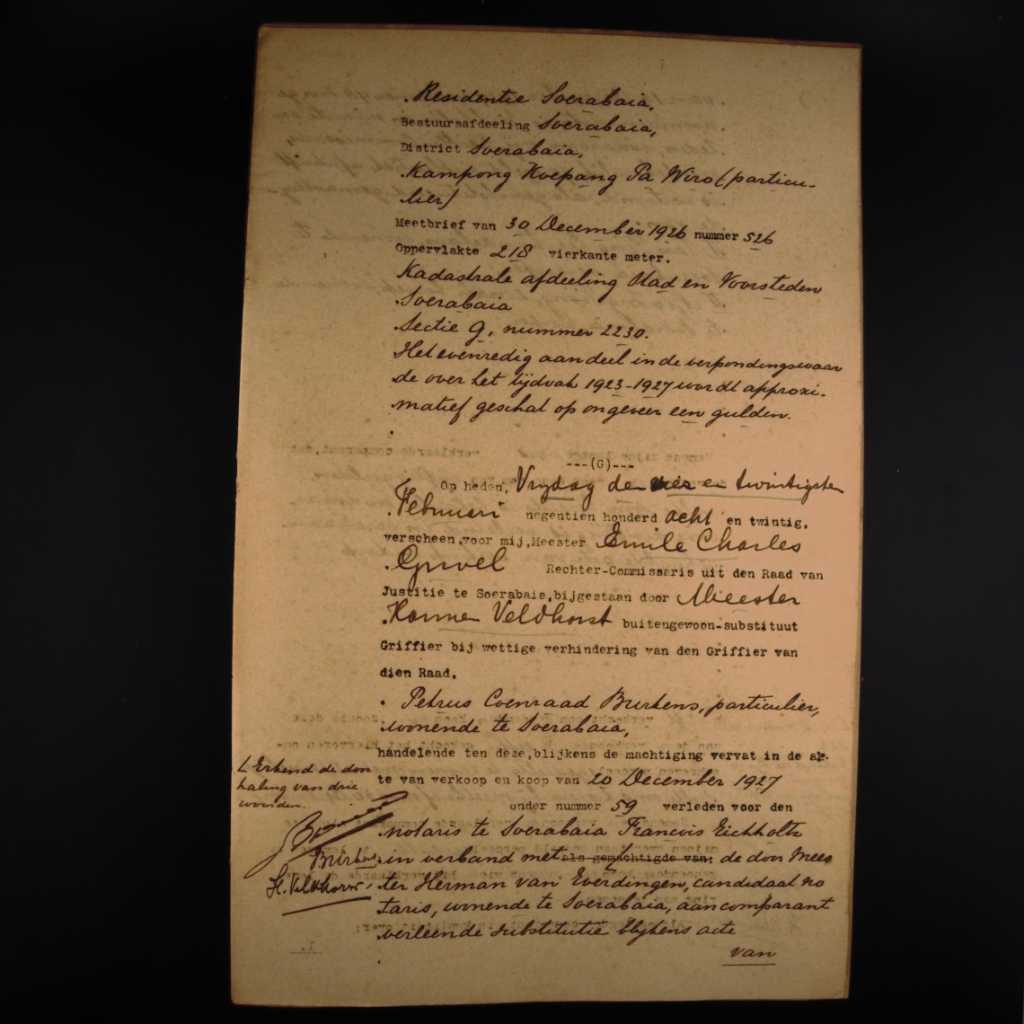 Residentie Soerabaia,
Bestuursafdeeling Soerabaia,
District Soerabaia,
Kampong Koepang Pa Wiro (particu-
lier)
Meetbrief van 30 December 1926 nummer 526
Oppervlakte 218 vierkante meter.
Kadastrale afdeeling Stad en Voorsteden
Soerabaia
Sectie G, nummer 2230.
Het evenredig aandeel in de verpondingswaar
de over het tijdvak 1923-1927 wordt approxi-
matief geschat op ongeveer een gulden.
---(G)---
Op heden, Vrijdag de vier en twintigste
Februari negentien honderd acht en twintig,
verscheen voor mij, Meester Emile Charles
Rechter-Commissaris uit den Raad van
Justitie te Soerabaia, bijgestaan door Meester
Veldhorst buitengewoon-substituut
Griffier bij wettige verhindering van den Griffier van
dien Raad.
Petrus Coenraad Burkens, particulier,
wonende te Soerabaia,
handelende ten deze, blijkens de machtiging vervat in de ak-
te van verkoop en koop van 20 December 1927
onder nummer 59 verleden voor den
notaris te Soerabaia Francois Eickholtz
in verband met als gemachtigde van: de door Mees
ter Herman van Everdingen, candidaat no
taris, wonende te Soerabaia, aan comparant
verleende substitutie blijkens acte
van
Erkend de door
haling van drie
woorden.
Burkens
H. Veldhorst